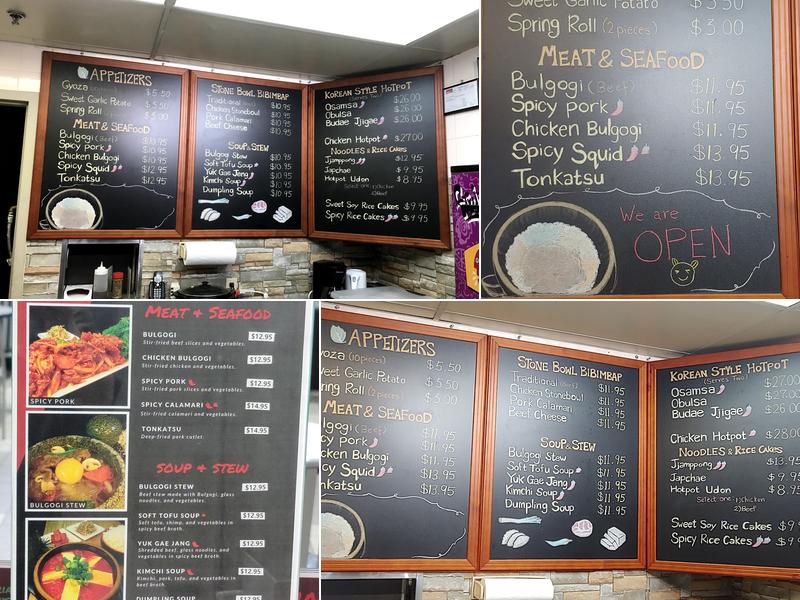 APPETIZERS
Gyoza $5.50
Sweet Garlic Potato $5.50
Spring Roll $5.00
MEAT & SEAFOOD
Bulgogi (Beef) $10.95
Spicy Pork $10.95
Chicken Bulgogi $10.95
Spicy Squid $12.95
Tonkatsu $12.95
STONE BOWL BIBIMBAP
Traditional (Beef) $10.95
Chicken Stonebowl $10.95
Pork Calamari $10.95
Beef Cheese $10.95
SOUP & STEW
Bulgogi Stew $10.95
Soft Tofu Soup $10.95
Yuk Gae Jang $10.95
Kimchi Soup $10.95
Dumpling Soup $10.95
KOREAN STYLE HOTPOT
(Serves Two)
Osamsa $26.00
Obulsa $26.00
Budae Jjigae $26.00
Chicken Hotpot $27.00
NOODLES & RICE CAKES
Jjamppong $12.95
Japchae $9.95
Hotpot Udon $8.75
Select one: 1) Chicken
2) Beef
Sweet Soy Rice Cakes $9.95
Spicy Rice Cakes $9.95
Sweet Garlic Potato $5.50
Spring Roll (2 pieces) $3.00
MEAT & SEAFOOD
Bulgogi (Beef) $11.95
Spicy Pork $11.95
Chicken Bulgogi $11.95
Spicy Squid $13.95
Tonkatsu $13.95
We are
OPEN
MEAT & SEAFOOD
BULGOGI $12.95
Stir-fried beef slices and vegetables.
CHICKEN BULGOGI $12.95
Stir-fried chicken and vegetables.
SPICY PORK $12.95
Stir-fried pork slices and vegetables.
SPICY CALAMARI $14.95
Stir-fried calamari and vegetables.
TONKATSU $14.95
Deep-fried pork cutlet.
SPICY PORK
SOUP & STEW
BULGOGI STEW $12.95
Beef stew made with Bulgogi, glass
noodles, and vegetables.
SOFT TOFU SOUP $12.95
Soft tofu, shimp, and vegetables in
spicy beef broth.
YUK GAE JANG $12.95
Shredded beef, glass noodles, and
vegetables in spicy beef broth.
KIMCHI SOUP $12.95
Kimchi, pork, tofu, and vegetables in
beef broth.
DUMPLING SOUP
BULGOGI STEW
APPETIZERS
yoza (10 pieces) $5.50
weet Garlic Potato $5.50
ring Roll (2 pieces) $3.00
MEAT & SEAFOOD
lgogi (Beef) $11.95
cy Pork $11.95
icken Bulgogi $11.95
cy Squid $13.95
nkatsu $13.95
STONE BOWL BIBIMBAP
Traditional (Beef) $11.95
Chicken Stonebowl $11.95
Pork Calamari $11.95
Beef Cheese $11.95
SOUP & STEW
Bulgogi Stew $11.95
Soft Tofu Soup $11.95
Yuk Gae Jang $11.95
Kimchi Soup $11.95
Dumpling Soup $11.95
KOREAN STYLE HOTPOT
(Serves Two)
Osamsa $27.00
Obulsa $27.00
Budae Jjigae $26.00
Chicken Hotpot $28.00
NOODLES & RICE CAKES
Jjampong $13.95
Japchae $9.95
Hotpot Udon $8.
Select one: 1) Chicken
2) Beef
Sweet Soy Rice Cakes $9
Spicy Rice Cakes $9.